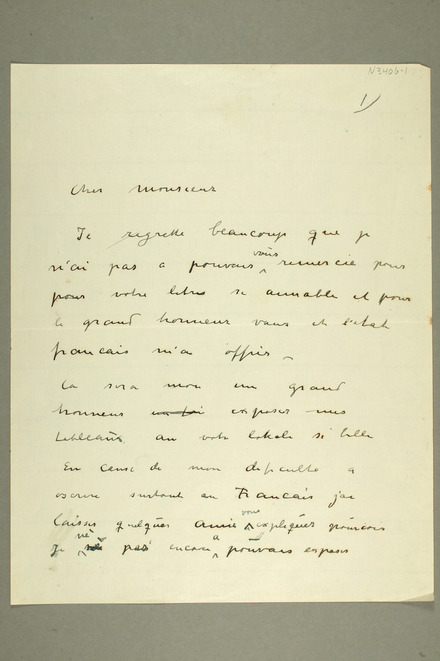 N3406-1
1)
Cher Monsieur
Je regrette beaucoup que je
n'ai pas a pouvais vous remercie pour
pour votre letres si aimable et pour
le grand honneur vous et l'etat
francais m'a offrir.
Ca sera mon un grand
honneur exposer mes
tableaux au votre lokale si belle
En cause de mon deficulte a
escrive surtout en Francais j'ai
laisser quelques amie vous expliquer pourcois
Je ne pas encore a pouvais exposer